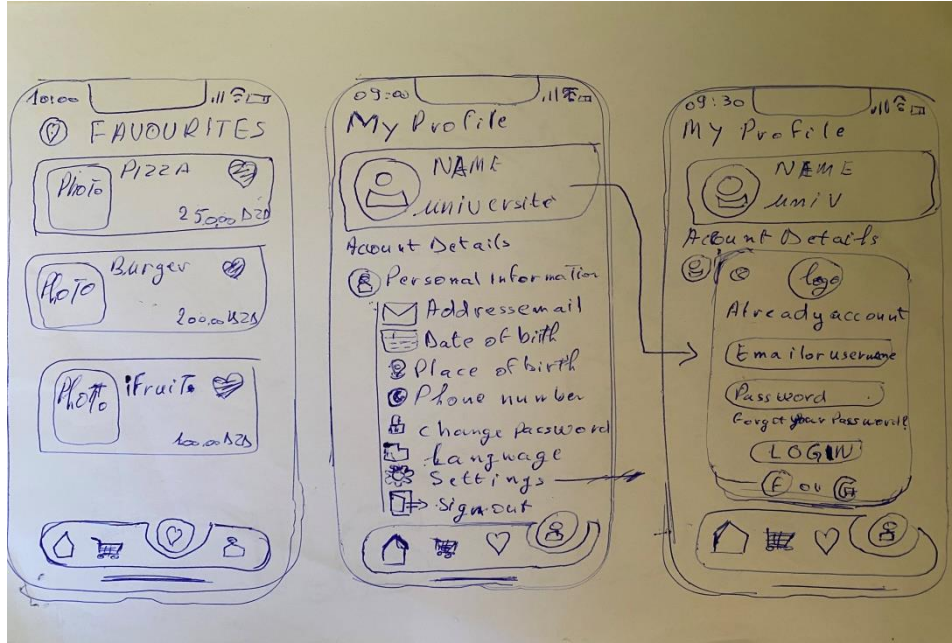 10:00
FAVOURITES
Photo
PIZZA
250,00 DZD
Photo
Burger
200,00 DZD
Photo
Fruits
100,00 DZD
09:00
My Profile
NAME
université
Account Details
Personal Information
Addressemail
Date of birth
Place of birth
Phone number
change password
Language
Settings
sign out
09:30
MY Profile
NAME
univ
Account Details
logo
Already account
Email or username
Password
Forgot your Password?
LOGIN
F ou G